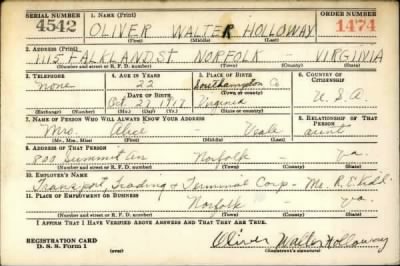 SERIAL NUMBER 1. NAME (Print) ORDER NUMBER
4542 OLIVER WALTER HOLLOWAY 1474
(First) (Middle) (Last)
2. ADDRESS (Print)
1115 FALKLAND ST NORFOLK VIRGINIA
(Number and street or R. F. D. number) (Town) (County) (State)
3. TELEPHONE 4. AGE IN YEARS 5. PLACE OF BIRTH 6. COUNTRY OF CITIZENSHIP
None 22 Southampton Co
DATE OF BIRTH (Town or county)
Oct. 27 1917 Virginia U.S.A.
(Exchange) (Number) (Mo.) (Day) (Yr.) (State or country)
7. NAME OF PERSON WHO WILL ALWAYS KNOW YOUR ADDRESS 8. RELATIONSHIP OF THAT PERSON
Mrs. Alice - Veale aunt
(Mr., Mrs., Miss) (First) (Middle) (Last)
9. ADDRESS OF THAT PERSON
800 Summit Av Norfolk - Va.
(Number and street or R. F. D. number) (Town) (County) (State)
10. EMPLOYER'S NAME
Transport Trading & Terminal Corp - Mr. R. E.
11. PLACE OF EMPLOYMENT OR BUSINESS
Norfolk Va.
(Number and street or R. F. D. number) (Town) (County) (State)
I AFFIRM THAT I HAVE VERIFIED ABOVE ANSWERS AND THAT THEY ARE TRUE.
REGISTRATION CARD Oliver Walter Holloway
D. S. S. Form 1 (over) (Registrant's signature)